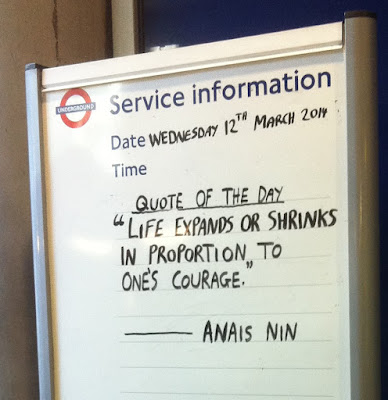 UNDERGROUND
Service information
Date WEDNESDAY 12TH MARCH 2014
Time
QUOTE OF THE DAY
"LIFE EXPANDS OR SHRINKS
IN PROPORTION TO
ONE'S COURAGE."
—— ANAIS NIN